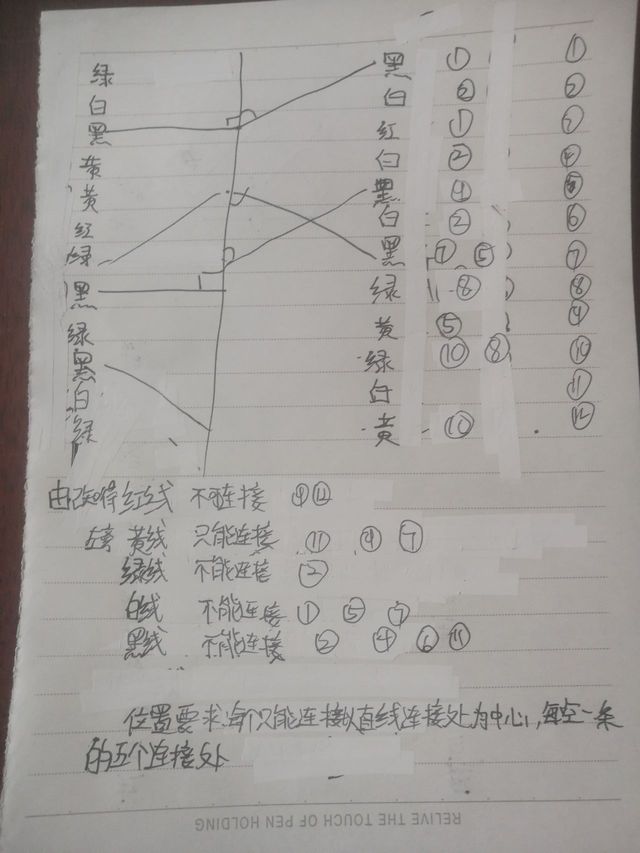 绿 黑 ① ①
白 白 ② ②
黑 红 ① ③
黄 白 ② ④
黄 黑 ④ ⑤
红 白 ② ⑥
绿 黑 ⑦ ⑤ ⑦
黑 绿 ⑧ ⑧
绿 黄 ⑤ ⑨
黑 绿 ⑩ ⑧ ⑩
白 白 ⑪
绿 黄 ⑩ ⑫
红线 不能连接 ⑨ ⑫
黄线 只能连接 ⑪ ④ ⑦
绿线 不能连接 ②
白线 不能连接 ① ⑤ ⑦
黑线 不能连接 ② ④ ⑥ ⑪
位置要求每个只能连接以直线连接处为中心,每空一条
的五个连接处
RELIVE THE TOUCH OF PEN HOLDING